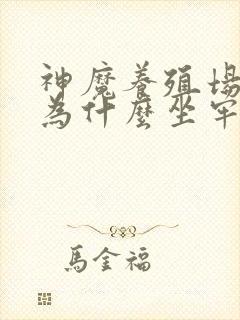 神魔養殖場
為什麼坐牢
馬金福